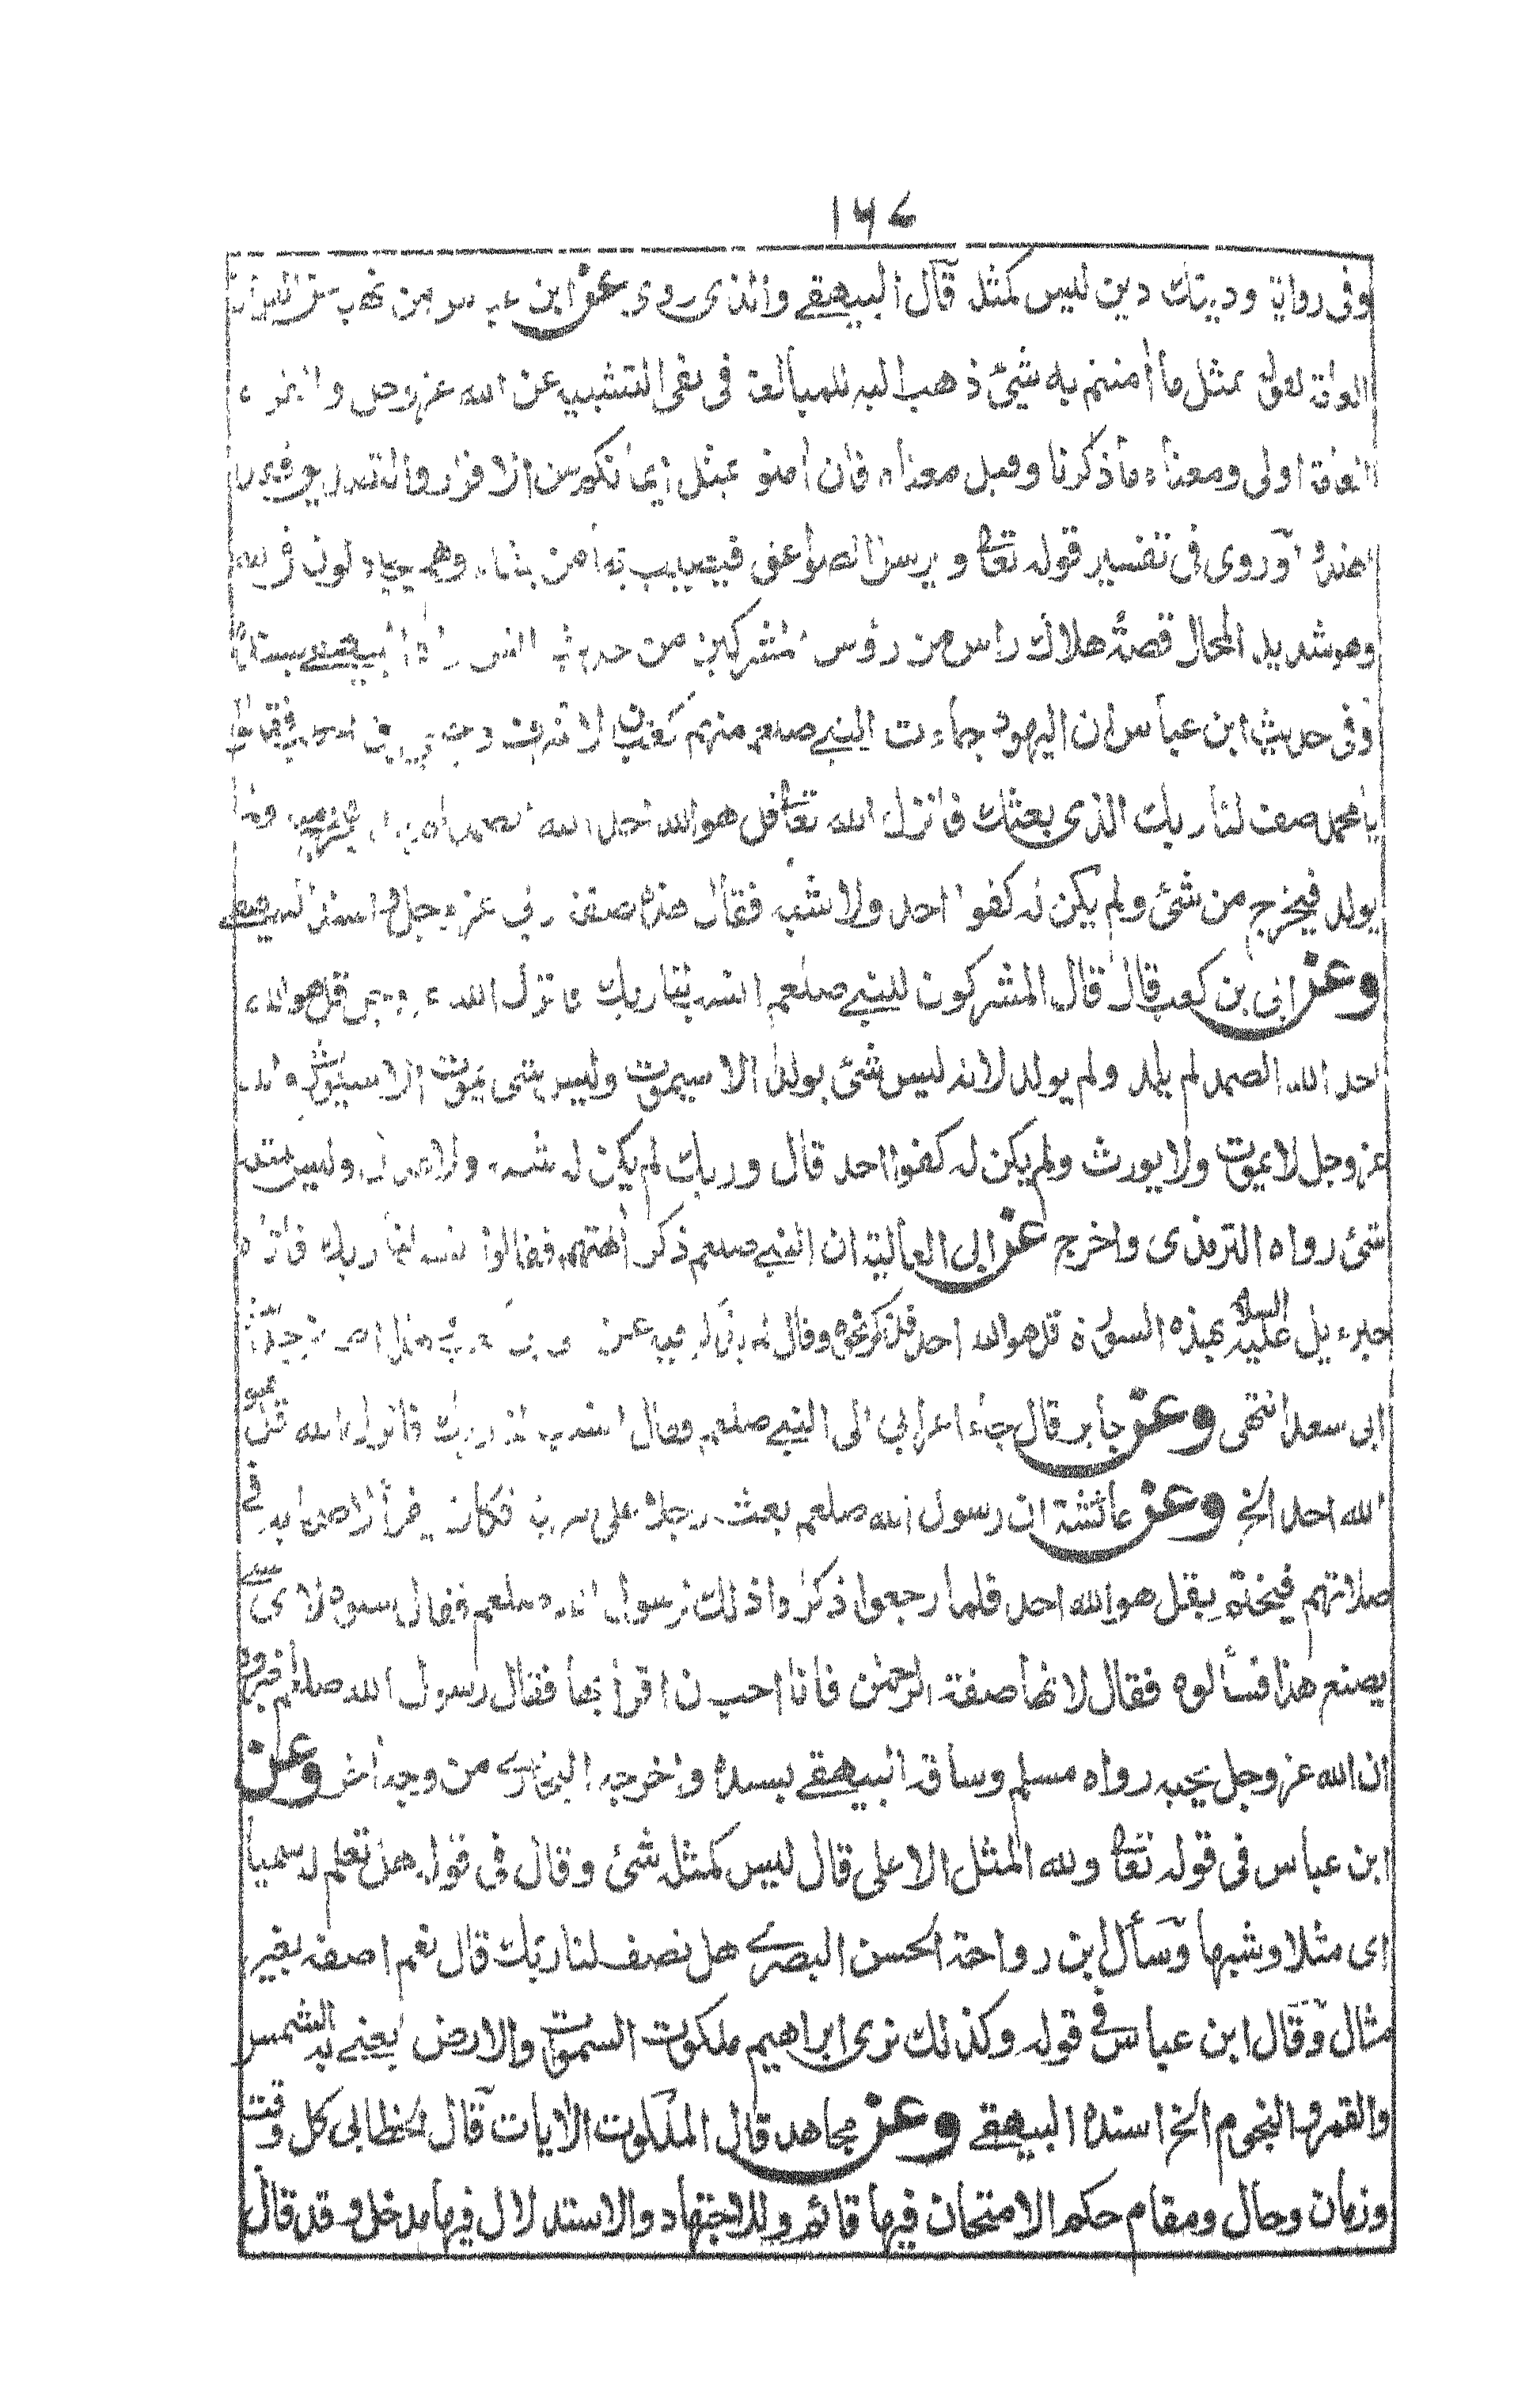 ١٦٧
وفى رواية ودينك دين ليس كمثله قال البيهقے والذى روى عن ابن عباس من نهيه عن القراءة
العامة لقوله بمثل ما أمنتم به شئ ذهب اليه للمبالغة فى نفى التشبيه عن الله عز وجل والقراءة
العامة اولى ومعناه ما ذكرنا وقيل معناه فان أمنوا بمثل ايمانكم من الاقرار والتصديق
وروى فى تفسير قوله تعا ويرسل الصواعق فيصيب بها من يشاء وهم يجادلون فى الله
وهو شديد المحال قصة هلاك راس من رؤس المشركين من حديث انس رواه البيهقے بسنده
وفى حديث ابن عباس ان اليهود جاءت النبے صلعم منهم كعب بن الاشرف
يا محمد صف لنا ربك الذى بعثك فانزل الله تعا قل هو الله احد الله الصمد لم يلد فيخرج منه ولم
يولد فيخرج من شئ ولم يكن له كفوا احد ولا شبه فقال هذه صفة ربى عز وجل اسنده البيهقے
وعن ابى بن كعب قال قال المشركون للنبے صلعم انسب لنا ربك فانزل الله عز وجل قل هو الله
احد الله الصمد لم يلد ولم يولد لانه ليس شئ يولد الا سيموت وليس شئ يموت الا سيورث والله
عز وجل لا يموت ولا يورث ولم يكن له كفوا احد قال وربك لم يكن له شبه ولا عدل وليس كمثله
شئ رواه الترمذى واخرج عن ابى العالية ان النبے صلعم ذكر ألهتهم فقالوا انسب لنا ربك فاتاه
جبرءيل عليه السلام بهذه السورة قل هو الله احد فذكر نحوه وقال لم يذكر فيه عن
ابى سعد انتهى وعن جابر قال جاء اعرابى الى النبے صلعم وقال انسب لنا ربك فانزل الله قل هو
الله احد الخ وعن عائشة ان رسول الله صلعم بعث رجلا على سرية فكان يقرأ لاصحابه فى
صلاتهم فيختم بقل هو الله احد فلما رجعوا ذكروا ذلك لرسول الله صلعم فقال سلوه لاى شئ
يصنع هذا فسألوه فقال لانها صفة الرحمن فانا احب ان اقرأ بها فقال رسول الله صلعم اخبروه
ان الله عز وجل يحبه رواه مسلم وساقه البيهقے بسنده واخرجه البخارے من وجه أخر وعن
ابن عباس فى قوله تعا ولله المثل الاعلى قال ليس كمثله شئ وقال فى قوله هل تعلم له سميا
اى مثلا وشبها وسأل ابن رواحة الحسن البصرے هل نصف لنا ربك قال نعم اصفه بغير
مثال وقال ابن عباس فى قوله وكذلك نرى ابراهيم ملكوت السموات والارض يعنے به الشمس
والقمر والنجوم الخ اسنده البيهقے وعن مجاهد قال الملكوت الايات قال الخطابى كل وقت
وزمان وحال ومقام حكم الامتحان فيها قائم وللاجتهاد والاستدلال فيها مدخل وقد قال